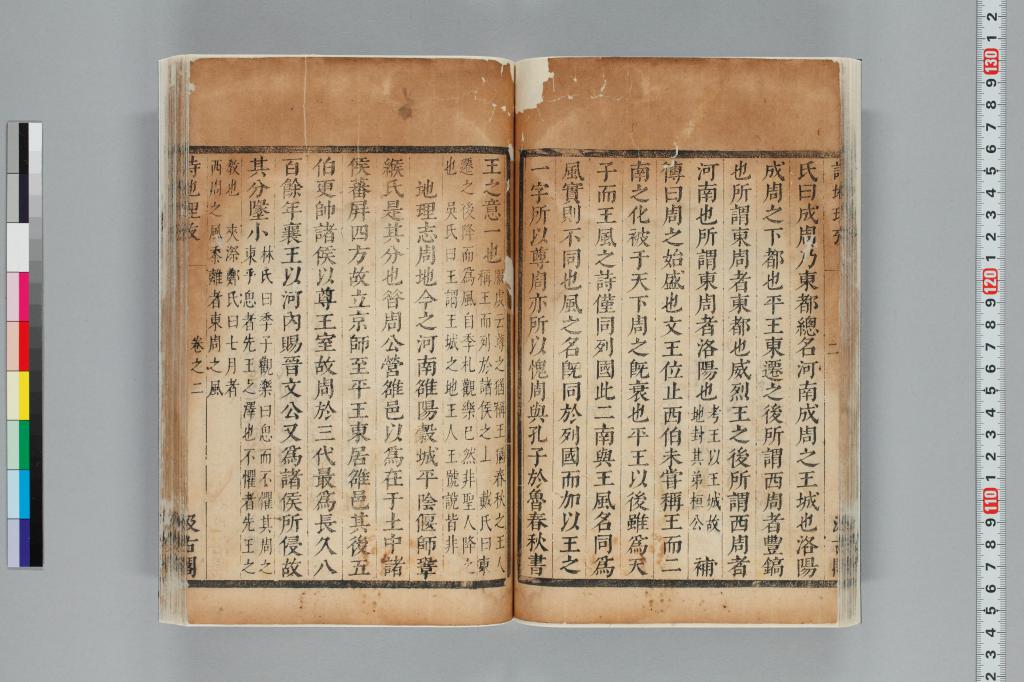 氏曰成周乃東都總名河南成周之王城也洛陽
成周之下都也平王東遷之後所謂西周者豐鎬
也所謂東周者東都也威烈王之後所謂西周者
河南也所謂東周者洛陽也考王以王城故地封其弟桓公 補
傳曰周之始盛也文王位止西伯未嘗稱王而二
南之化被于天下周之旣衰也平王以後雖爲天
子而王風之詩僅同列國此二南與王風名同爲
風實則不同也風之名旣同於列國而加以王之
一字所以尊周亦所以愧周與孔子於魯春秋書
王之意一也嚴虞云尊之猶稱王猶春秋之王人
稱王而列於諸侯之上 戴氏曰東
遷之後降而爲風自季札觀樂已然非聖人降之
也 吳氏曰王謂王城之地王人王號說皆非
地理志周地今之河南雒陽穀城平陰偃師鞏
緱氏是其分也昔周公營雒邑以爲在于土中諸
侯蕃屏四方故立京師至平王東居雒邑其後五
伯更帥諸侯以尊王室故周於三代最爲長久八
百餘年襄王以河內賜晉文公又爲諸侯所侵故
其分墬小林氏曰季子觀樂曰思而不懼其周之
東乎思者先王之澤也不懼者先王之
敎也 夾漈鄭氏曰七月者
西周之風黍離者東周之風
詩地理攷
卷之二
汲古閣
詩地理攷
二
汲古閣
130
120
110